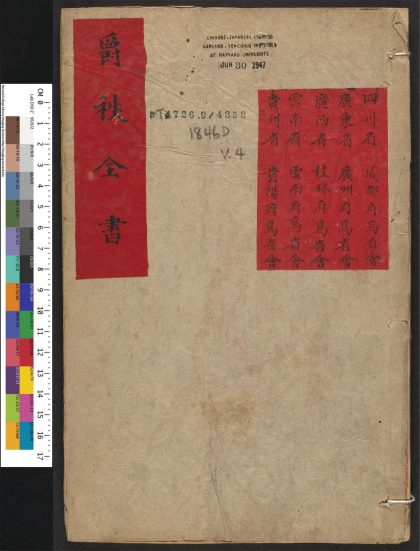 爵秩全書
CHINESE-JAPANESE LIBRARY
HARVARD-YENCHING INSTITUTE
AT HARVARD UNIVERSITY
JUN 30 1947
T4726.9/4352
1846D
V.4
四川省 成都府爲省會
廣東省 廣州府爲省會
廣西省 桂林府爲省會
雲南省 雲南府爲省會
貴州省 貴陽府爲省會
CM 0 1 2 3 4 5 6 7 8 9 10 11 12 13 14 15 16 17